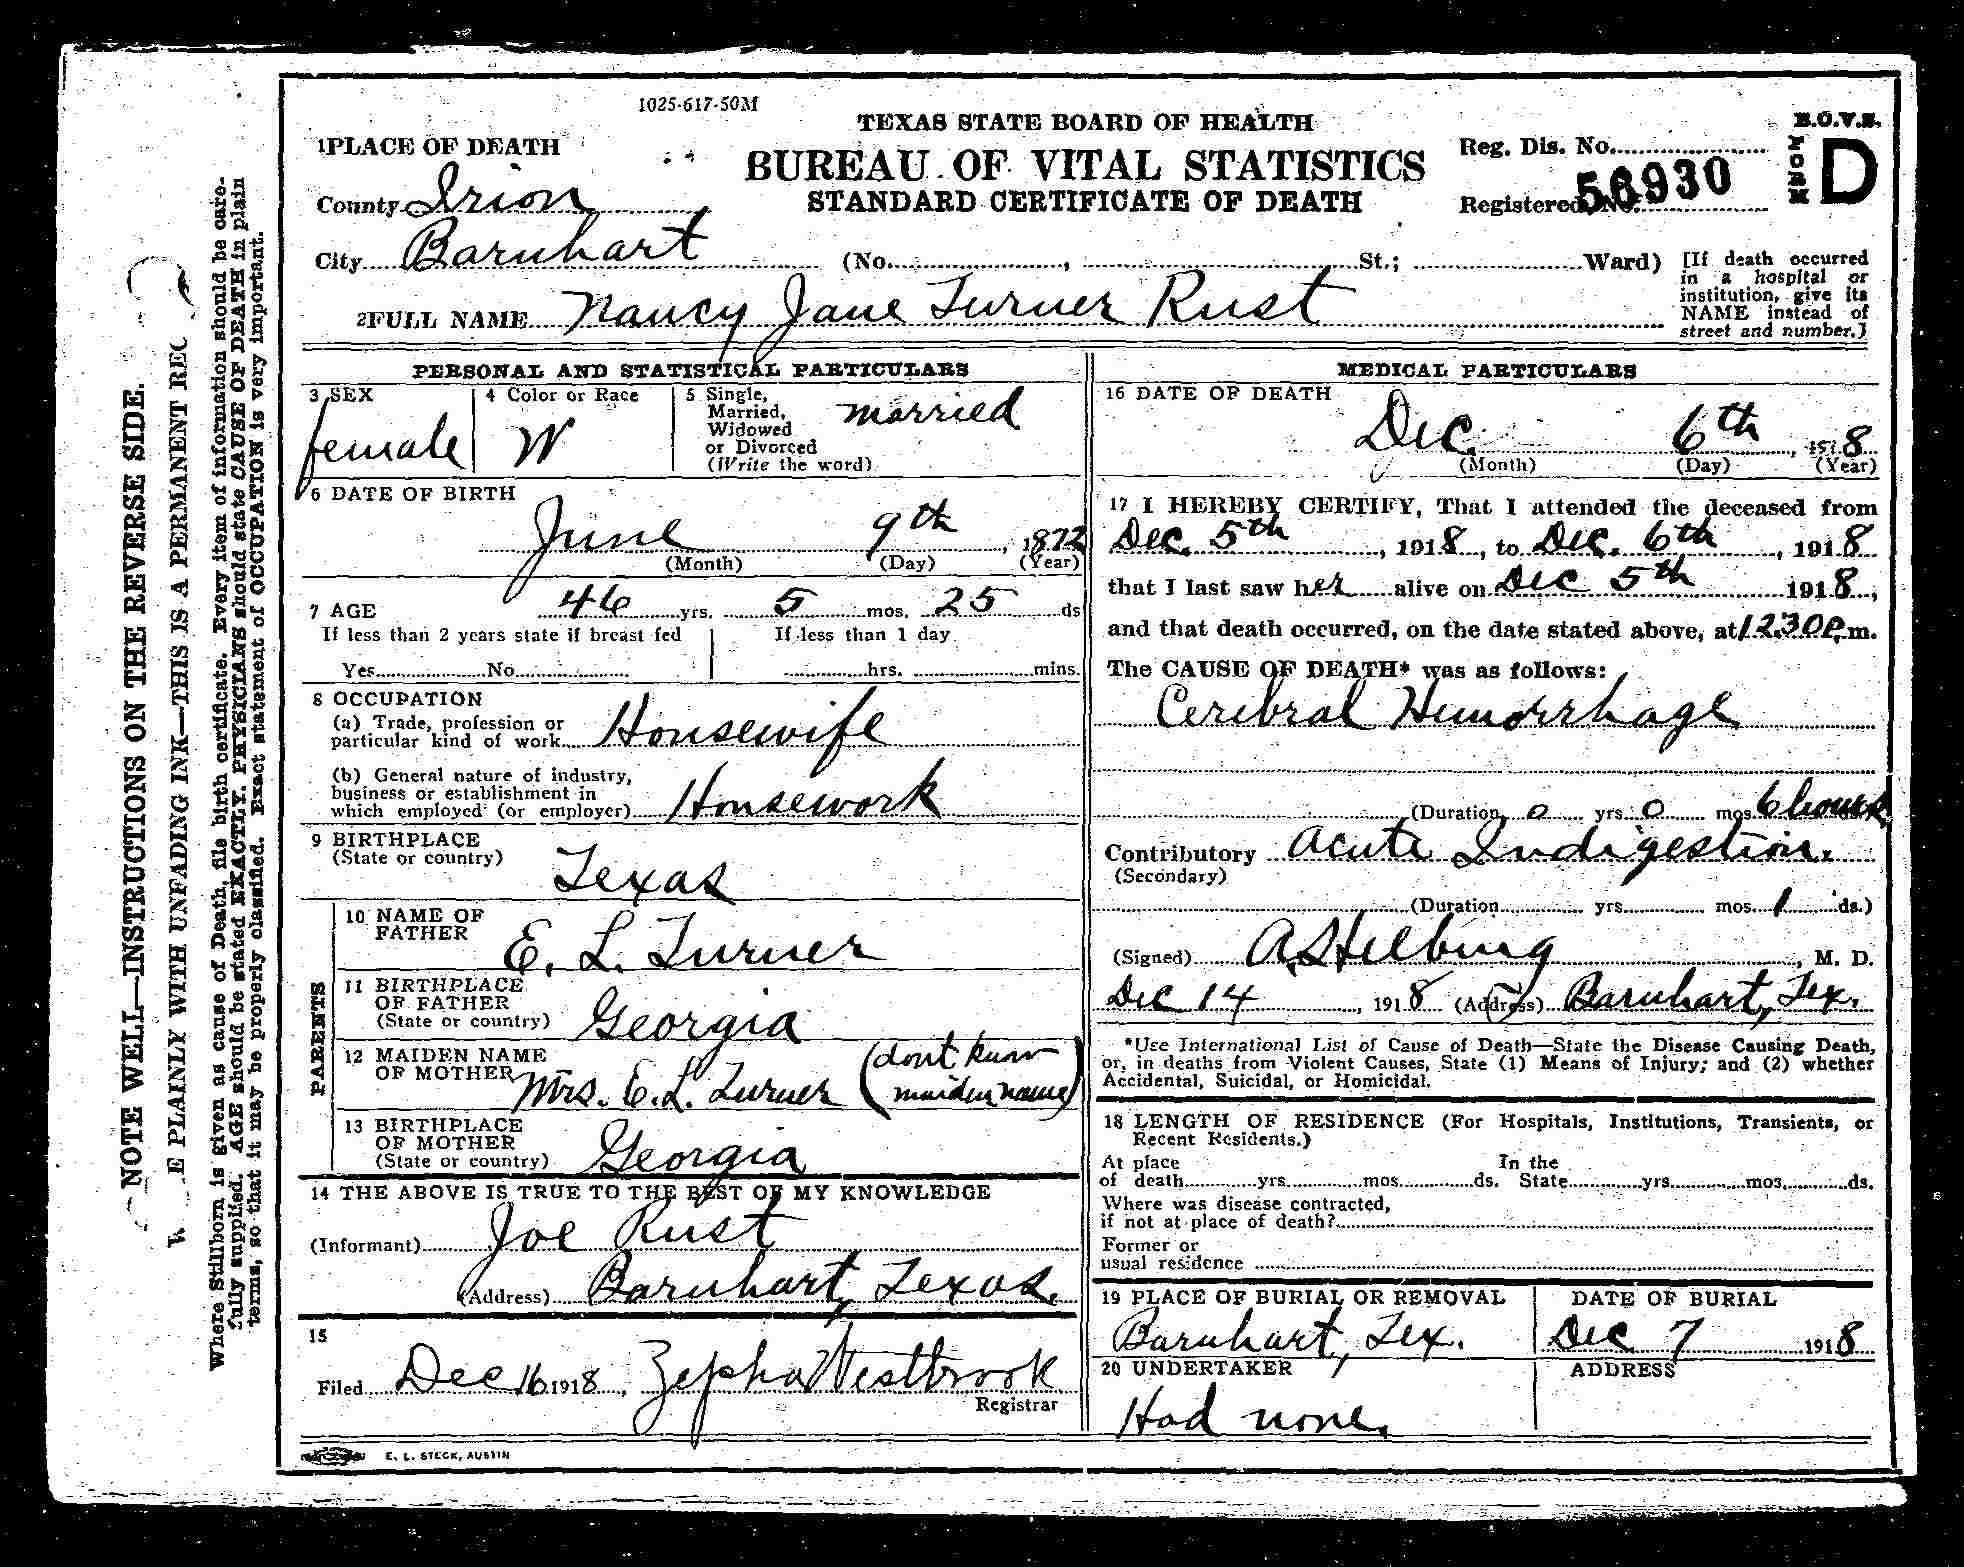 1025-617-50M
TEXAS STATE BOARD OF HEALTH
BUREAU OF VITAL STATISTICS
STANDARD CERTIFICATE OF DEATH
B.O.V.S.
FORM D
Reg. Dis. No.
Registered No. 56930
1 PLACE OF DEATH
County Irion
City Barnhart (No. , St.; Ward)
[If death occurred
in a hospital or
institution, give its
NAME instead of
street and number.]
2 FULL NAME Nancy Jane Turner Rust
PERSONAL AND STATISTICAL PARTICULARS
3 SEX
female
4 Color or Race
W
5 Single,
Married,
Widowed
or Divorced
(Write the word)
married
6 DATE OF BIRTH
June 9th, 1872
(Month) (Day) (Year)
7 AGE 46 yrs. 5 mos. 25 ds
If less than 2 years state if breast fed
Yes No
If less than 1 day
hrs. mins.
8 OCCUPATION
(a) Trade, profession or
particular kind of work Housewife
(b) General nature of industry,
business or establishment in
which employed (or employer) Housework
9 BIRTHPLACE
(State or country) Texas
PARENTS
10 NAME OF
FATHER E. L. Turner
11 BIRTHPLACE
OF FATHER
(State or country) Georgia
12 MAIDEN NAME
OF MOTHER Mrs. E. L. Turner (dont know
maiden name)
13 BIRTHPLACE
OF MOTHER
(State or country) Georgia
14 THE ABOVE IS TRUE TO THE BEST OF MY KNOWLEDGE
(Informant) Joe Rust
(Address) Barnhart, Texas.
15
Filed Dec 16 1918, Zepha Westbrook
Registrar
E. L. STECK, AUSTIN
MEDICAL PARTICULARS
16 DATE OF DEATH
Dec. 6th, 1918
(Month) (Day) (Year)
17 I HEREBY CERTIFY, That I attended the deceased from
Dec. 5th, 1918, to Dec. 6th, 1918
that I last saw her alive on Dec 5th 1918,
and that death occurred, on the date stated above, at 12.30 P. m.
The CAUSE OF DEATH* was as follows:
Ceribral Hemorrhage
(Duration 0 yrs 0 mos. 6 hours
Contributory Acute Indigestion.
(Secondary)
(Duration yrs. mos. 1 ds.)
(Signed) , M. D.
Dec 14, 1918 (Address) Barnhart, Tex.
*Use International List of Cause of Death—State the Disease Causing Death,
or, in deaths from Violent Causes, State (1) Means of Injury; and (2) whether
Accidental, Suicidal, or Homicidal.
18 LENGTH OF RESIDENCE (For Hospitals, Institutions, Transients, or
Recent Residents.)
At place In the
of death yrs. mos. ds. State yrs. mos. ds.
Where was disease contracted,
if not at place of death?
Former or
usual residence
19 PLACE OF BURIAL OR REMOVAL
Barnhart, Tex.
DATE OF BURIAL
Dec 7 1918
20 UNDERTAKER
Had none.
ADDRESS
NOTE WELL—INSTRUCTIONS ON THE REVERSE SIDE.
E PLAINLY WITH UNFADING INK—THIS IS A PERMANENT REC
Where Stillborn is given as cause of Death, file birth certificate. Every item of information should be care-
fully supplied. AGE should be stated EXACTLY. PHYSICIANS should state CAUSE OF DEATH in plain
terms, so that it may be properly classified. Exact statement of OCCUPATION is very important.